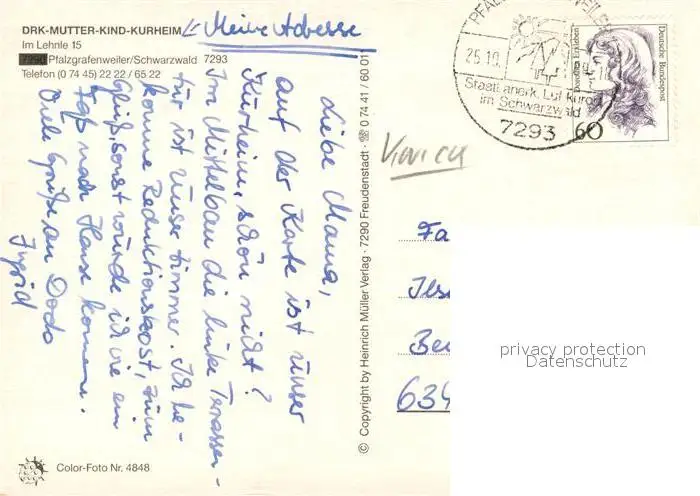 DRK-MUTTER-KIND-KURHEIM
Im Lehnle 15
7290 Pfalzgrafenweiler/Schwarzwald 7293
Telefon (0 74 45) 22 22 / 65 22
Meine Adresse
Liebe Mama,
auf der Karte ist unser
Kurheim, schön nicht?
Im Mittelbau die linke Terassen-
tür ist unser Zimmer. Ich be-
komme Reduktionskost, zum
Glück sonst würde ich wie ein
Faß nach Hause kommen.
Viele Grüße an Dodo
Ingrid
Color-Foto Nr. 4848
© Copyright by Heinrich Müller Verlag · 7290 Freudenstadt · ☎ 0 74 41 / 60 01
25.10.
Staatl. anerk. Luftkurort
im Schwarzwald
7293
Dorothea Erxleben
Deutsche Bundespost
60
Fa
Ilse
634
privacy protection
Datenschutz